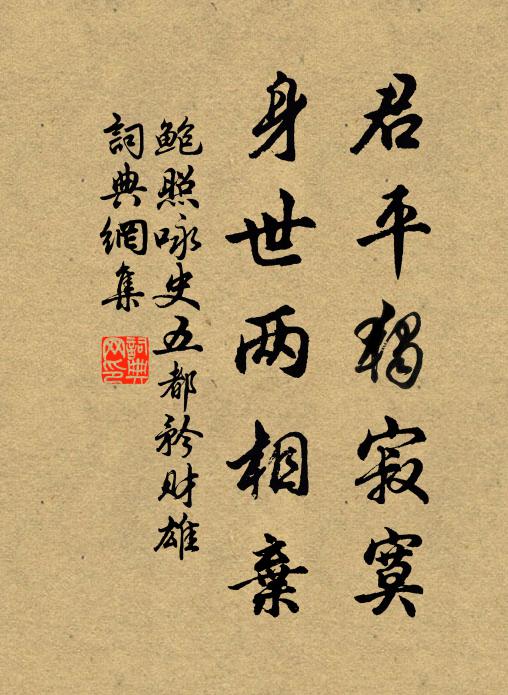 君平独寂寞
身世两相棄
鲍照咏史五都矜财雄
詞典網集
詞典
网印